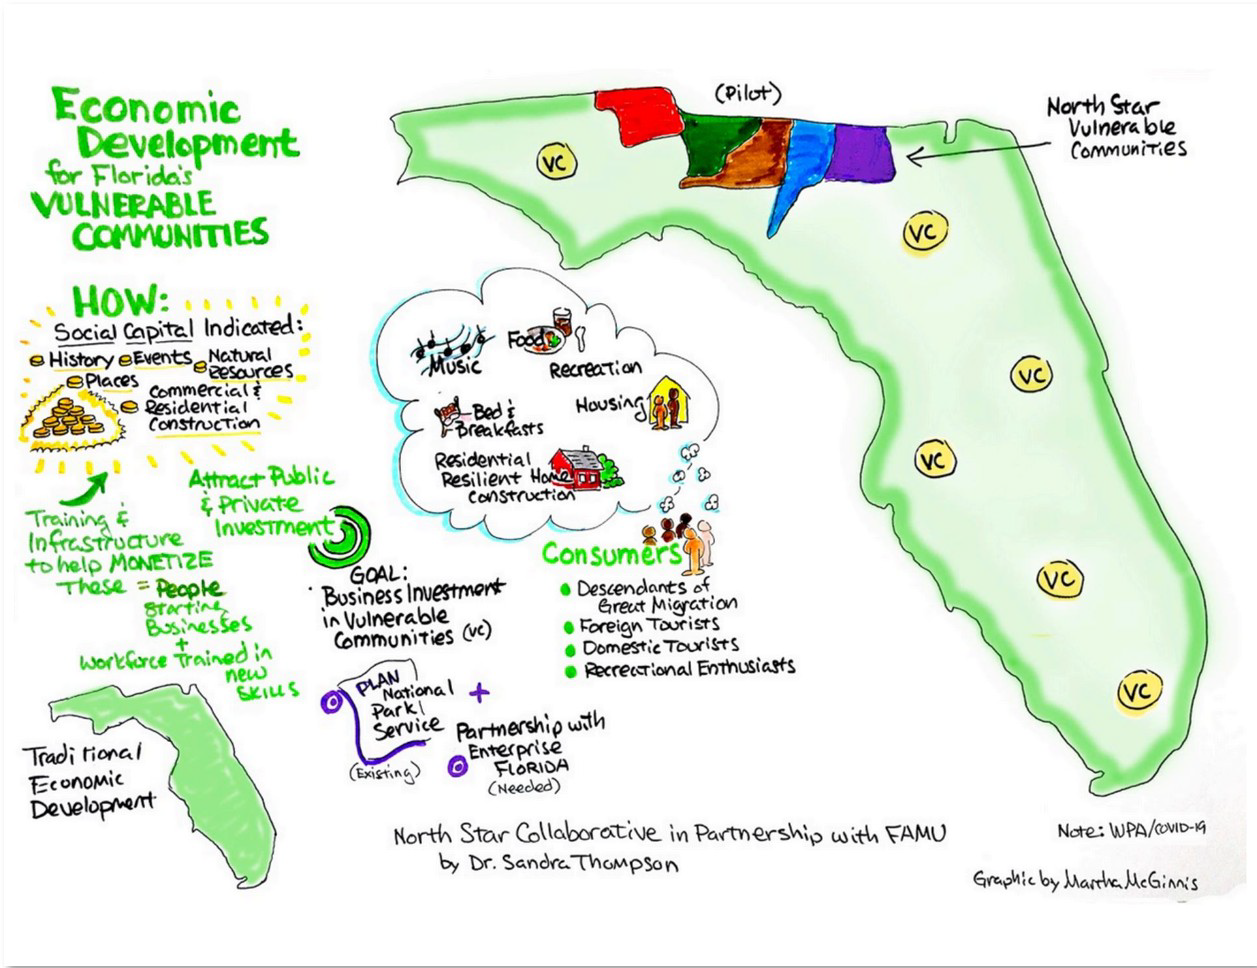 Economic
Development
for Florida's
VULNERABLE
COMMUNITIES
HOW:
Social Capital Indicated:
History
Events
Natural
Resources
Places
Commercial &
Residential
Construction
Training &
Infrastructure
to help MONETIZE
These = People
Starting
Businesses
+
Workforce Trained in
new
SKILLS
Attract Public
& Private
Investment
Traditional
Economic
Development
GOAL:
Business Investment
in Vulnerable
Communities (VC)
PLAN
National
Park
Service
(Existing)
+
Partnership with
Enterprise
FLORIDA
(Needed)
Music
Food
Recreation
Bed &
Breakfasts
Housing
Residential
Resilient Home
Construction
Consumers
Descendants of
Great Migration
Foreign Tourists
Domestic Tourists
Recreational Enthusiasts
(Pilot)
North Star
Vulnerable
Communities
VC
VC
VC
VC
VC
VC
North Star Collaborative in Partnership with FAMU
by Dr. Sandra Thompson
Note: WPA/COVID-19
Graphic by Martha McGinnis